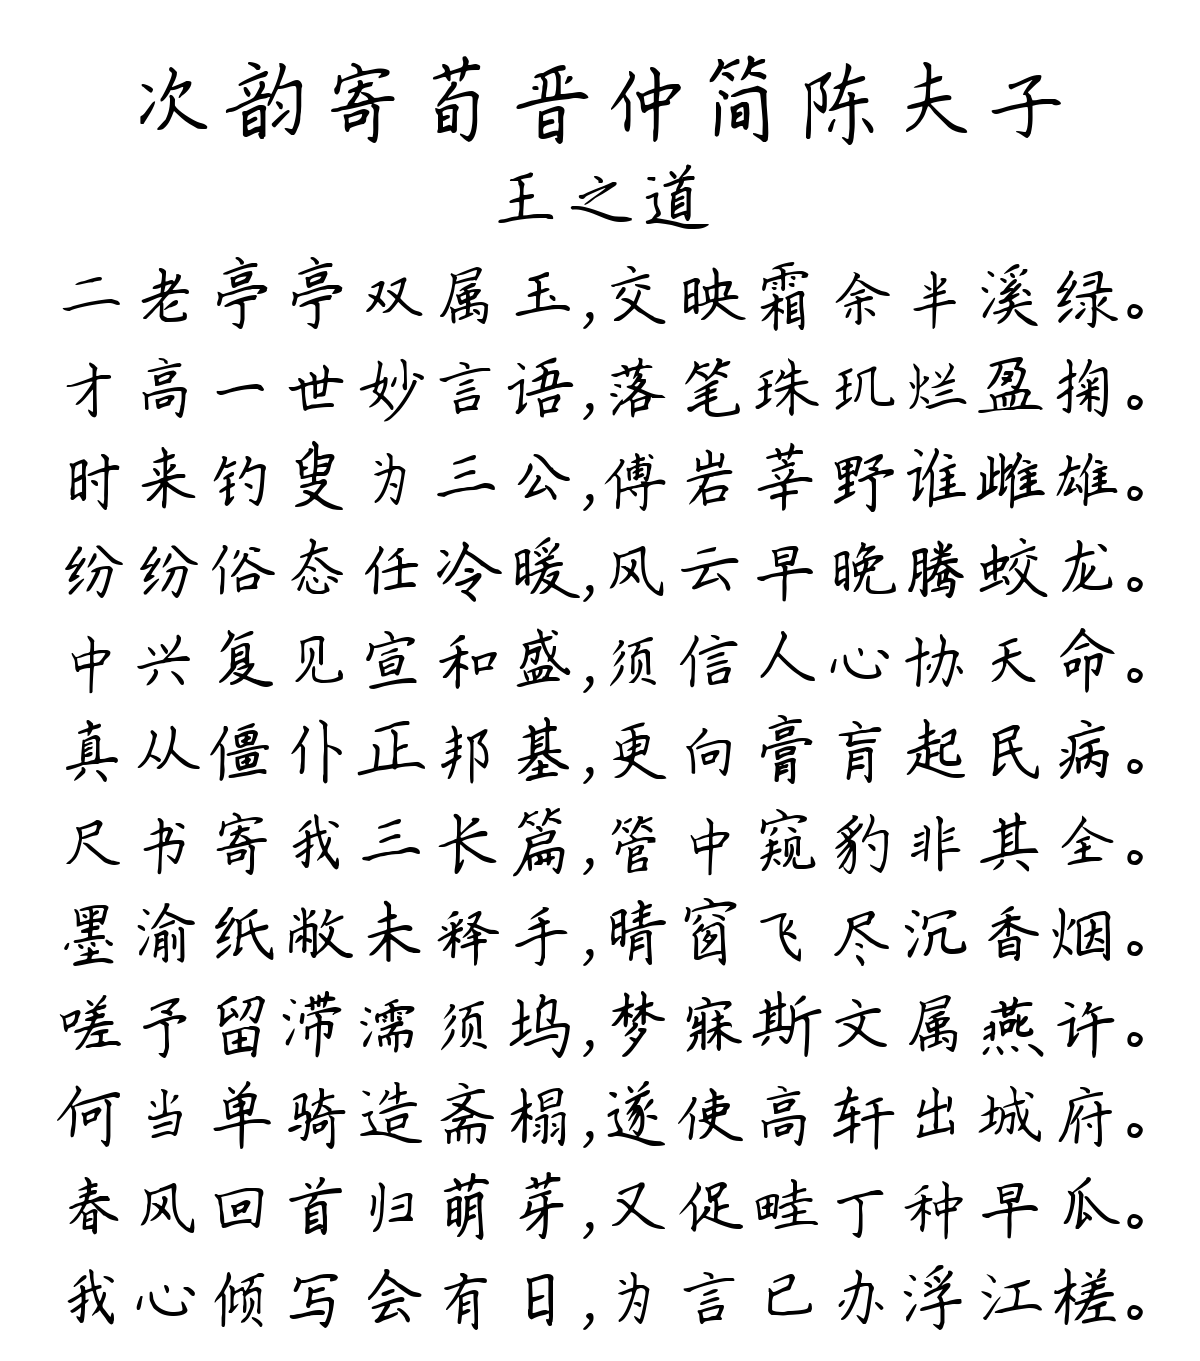 次韵寄荀晋仲简陈夫子
王之道
二老亭亭双属玉,交映霜余半溪绿。
才高一世妙言语,落笔珠玑烂盈掬。
时来钓叟为三公,傅岩莘野谁雌雄。
纷纷俗态任冷暖,风云早晚腾蛟龙。
中兴复见宣和盛,须信人心协天命。
真从僵仆正邦基,更向膏肓起民病。
尺书寄我三长篇,管中窥豹非其全。
墨渝纸敝未释手,晴窗飞尽沉香烟。
嗟予留滞濡须坞,梦寐斯文属燕许。
何当单骑造斋榻,遂使高轩出城府。
春风回首归萌芽,又促畦丁种早瓜。
我心倾写会有日,为言已办浮江槎。